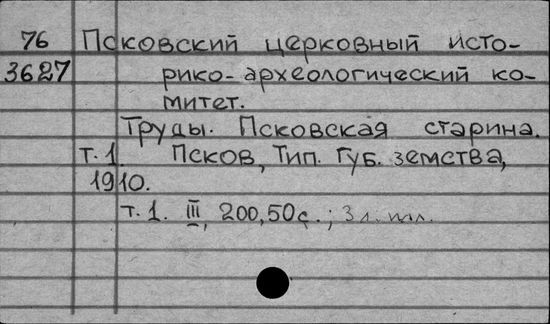 76 Псковский церковный исто-
3627 рико-археологический ко-
митет.
Труды. Псковская старина.
т.1. Псков, Тип. Губ. земства,
1910.
т.1. III, 200,50с.; 3 л. илл.